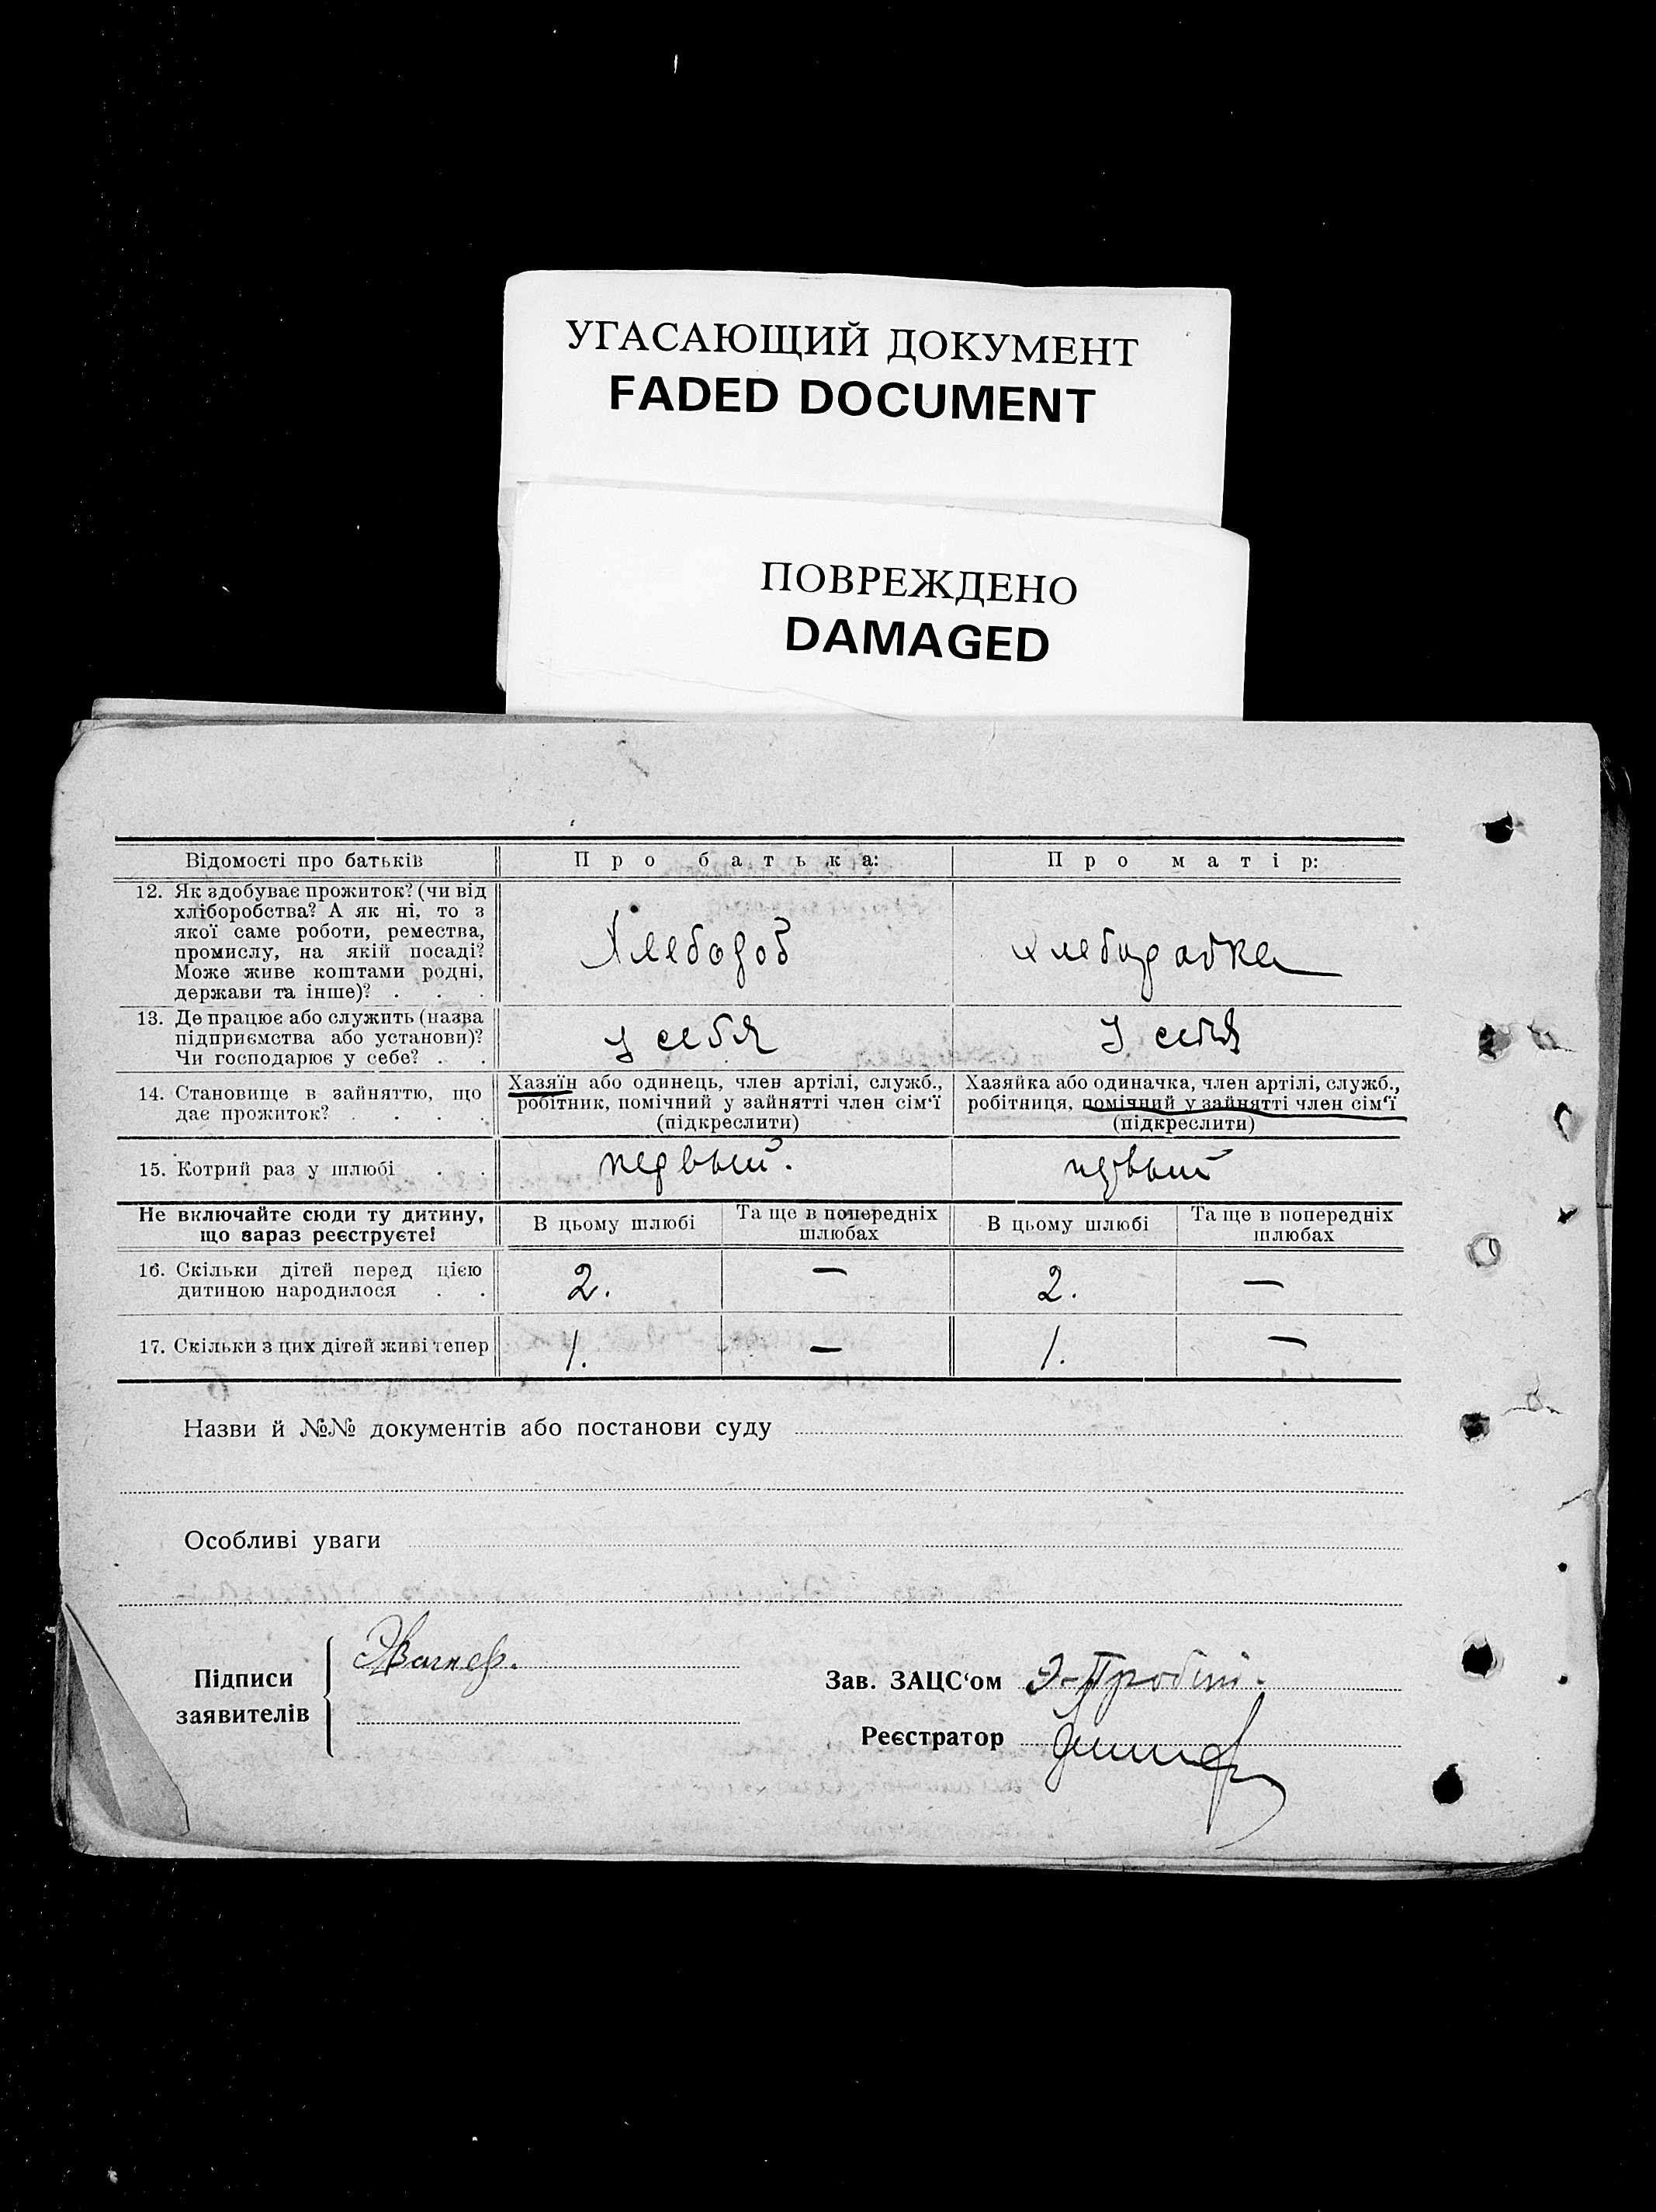 УГАСАЮЩИЙ ДОКУМЕНТ
FADED DOCUMENT
ПОВРЕЖДЕНО
DAMAGED
Відомості про батьків
Про батька:
Про матір:
12. Як здобуває прожиток? (чи від
хліборобства? А як ні, то з
якої саме роботи, ремества,
промислу, на якій посаді?
Може живе коштами родні,
держави та інше)? . . .
Хлебороб
хлеборобка
13. Де працює або служить (назва
підприємства або установи)?
Чи господарює у себе? . .
У себя
У себя
14. Становище в зайняттю, що
дає прожиток? . . . .
Хазяїн або одинець, член артілі, служб.,
робітник, помічний у зайнятті член сім'ї
(підкреслити)
Хазяйка або одиначка, член артілі, служб.,
робітниця, помічний у зайнятті член сім'ї
(підкреслити)
15. Котрий раз у шлюбі . .
первый.
первый
Не включайте сюди ту дитину,
що зараз реєструєте!
В цьому шлюбі
Та ще в попередніх
шлюбах
В цьому шлюбі
Та ще в попередніх
шлюбах
16. Скільки дітей перед цією
дитиною народилося . .
2.
—
2.
—
17. Скільки з цих дітей живі тепер
1.
—
1.
—
Назви й №№ документів або постанови суду
Особливі уваги
Підписи
заявителів
Вагнер.
Зав. ЗАЦС'ом
Реєстратор